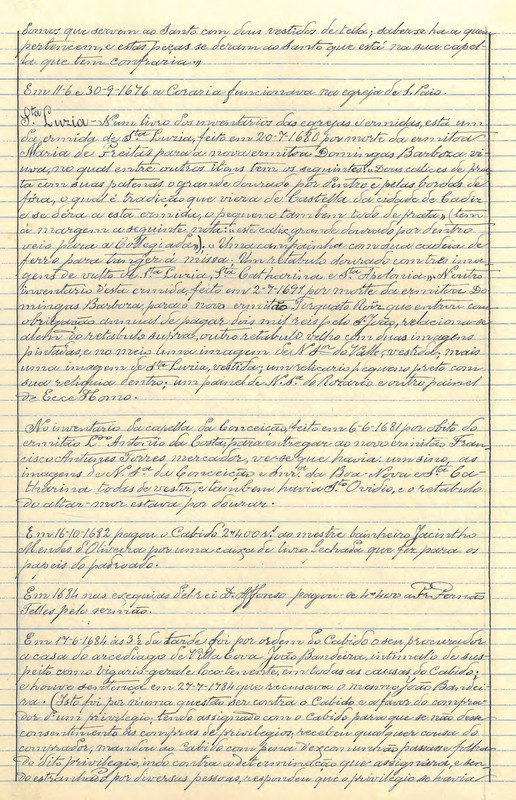 bonus que servem ao Santo com dous vestidos de tella; saber se ha a quem
pertencem, e estas peças se deram ao santo que está na sua capel-
la que tem confraria."
Em 11-6 e 30-9-1676 a Cosaria funccionava na egreja de S. Paio.
Sta Luzia - N'um livro dos inventarios das egrejas e ermidas, está um
da ermida de Sta Luzia, feito em 20-7-1680 por morte da ermitoa
Maria de Freitas para a nova ermitoa Domingas Barboza vi-
uva, no qual entre outros itens tem os seguintes: "Dous calices de pra-
ta com suas patenas o grande dourado por dentro e pelas bordas de
fóra, o qual é tradição que viera de Castella da cidade de Cadex
e se déra a esta ermida, o pequeno tambem todo de prata" (tem
á margem a seguinte nota: "este calix grande dourado por dentro
veio para a Collegiada"). "Uma campainha com sua cadeia de
ferro para tanger á missa. Um retabulo dourado com tres ima-
gens de vulto de Sta Luzia, Sta Catharina e Sta Apolonia". N'outro
inventario d'esta ermida, feito em 2-7-1691 por morte da ermitoa Do-
mingas Barboza, para o novo ermitão Torquato Roiz que entrou com
obrigação annual de pagar dois mil reis pelo S. João, relaciona-se
alem do retabulo supra, outro retabulo velho com duas imagens
pintadas, e no meio uma imagem de N. Sra do Valle, vestida; mais
uma imagem de Sta Luzia, vestida; um relicario pequeno preto com
sua reliquia dentro; um painel de N. Sa do Rozario e outro painel
de Ecce Homo.
No inventario da capella da Conceição, feito em 6-6-1681 por obito do
ermitão Ldo Antonio da Costa, para entregar ao novo ermitão Fran-
cisco Antunes Torres mercador, ve-se que havia: um sino, as
imagens de N. Sra da Conceição e da Boa-Nova e Sta Ca-
tharina todas de vestir, e tambem havia Sto Ovidio, e o retabulo
do altar-mor estava por dourar.
Em 16-10-1682 pagou o Cabido 2$400 rs. ao mestre bainheiro Jacintho
Mendes d'Oliveira por uma caixa de livro fechada que fez para os
papeis do padroado.
Em 1684 nas exequias del-rei D. Affonso pagou-se 4$400 a Fr. Fernão
Telles pelo sermão.
Em 17-6-1684 ás 3 h. da tarde foi por ordem do Cabido o seu procurador
a casa do arcediago de Villa Cova João Bandeira, intimal-o de sus-
peito como vigario geral e loco-tenente, em todas as causas do Cabido;
e houve sentença em 27-7-1784 que recusava o mesmo João Bandei-
ra. (Isto foi por n'uma questão ser contra o Cabido e a favor do compra-
dor d'um privilegio, tendo assignado com o Cabido para que se não désse
consentimento ás compras de privilegios, recebeu qualquer cousa do
comprador, mandou ao Cabido com pena d'excomunhão passasse folha
do dito privilegio, indo contra a determinação que assignára, e sen-
do estranhado por diversas pessoas, respondeu que o privilegio se havia